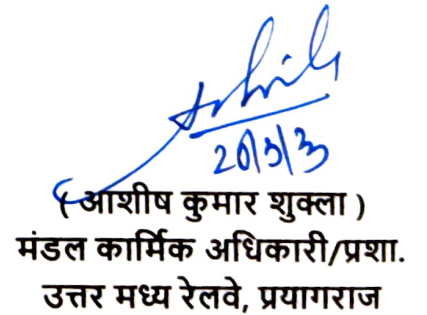 ( आशीष कुमार शुक्ला )
मंडल कार्मिक अधिकारी/प्रशा.
उत्तर मध्य रेलवे, प्रयागराज